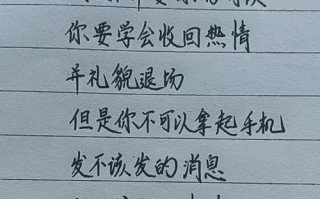 你要学会收回热情
并礼貌退场
但是你不可以拿起手机
发不该发的消息